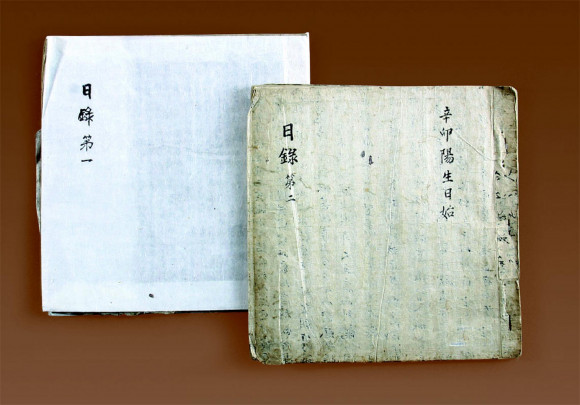 日錄 第一
辛卯陽生日始
日錄 第二